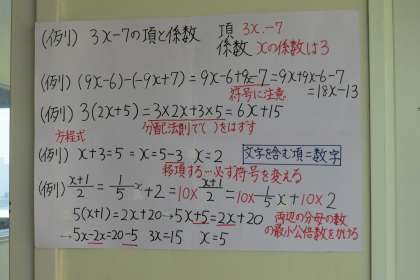 (例) 3x-7の項と係数 項 3x.-7
係数 xの係数は3
(例) (9x-6)-(-9x+7)=9x-6+9x-7=9x+9x-6-7
符号に注意 =18x-13
(例) 3(2x+5)=3×2x+3×5=6x+15
方程式 分配法則で( )をはずす
(例) x+3=5=x=5-3 x=2 文字を含む項=数字
移項する…必ず符号を変える
(例) x+1/2=1/5x+2=10×x+1/2=10×1/5x+10×2
5(x+1)=2x+20→5x+5=2x+20 両辺の分母の数
→5x-2x=20-5 3x=15 x=5 の最小公倍数をかける